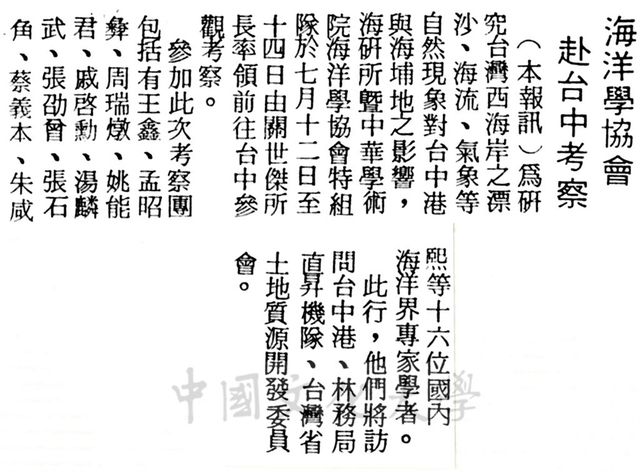 海洋學協會
赴台中考察
（本報訊）爲研
究台灣西海岸之漂
沙、海流、氣象等
自然現象對台中港
與海埔地之影響，
海研所暨中華學術
院海洋學協會特組
隊於七月十二日至
十四日由關世傑所
長率領前往台中參
觀考察。
參加此次考察團
包括有王鑫、孟昭
彝、周瑞燉、姚能
君、戚啓勳、湯麟
武、張劭曾、張石
角、蔡義本、朱咸
熙等十六位國內
海洋界專家學者。
此行，他們將訪
問台中港、林務局
直昇機隊、台灣省
土地質源開發委員
會。
中國文化大學